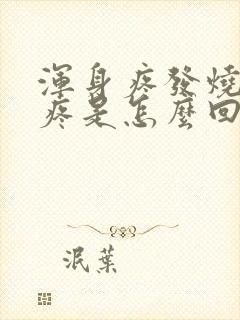 渾身疼發燒
疼是怎麼回
泯葉